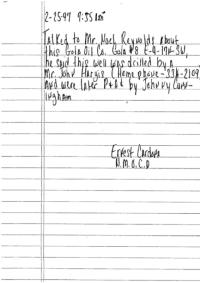 2-25-97 9:35 AM
Talked to Mr. Noel Reynolds about
this Gola Oil Co. Gola #8 E-9-17N-3W,
he said this well was drilled by a
Mr. John Hargis (Home phone - 334-2109
and were later P+A+ by Johnny Cunn-
ingham
Ernest
N.M.O.C.D